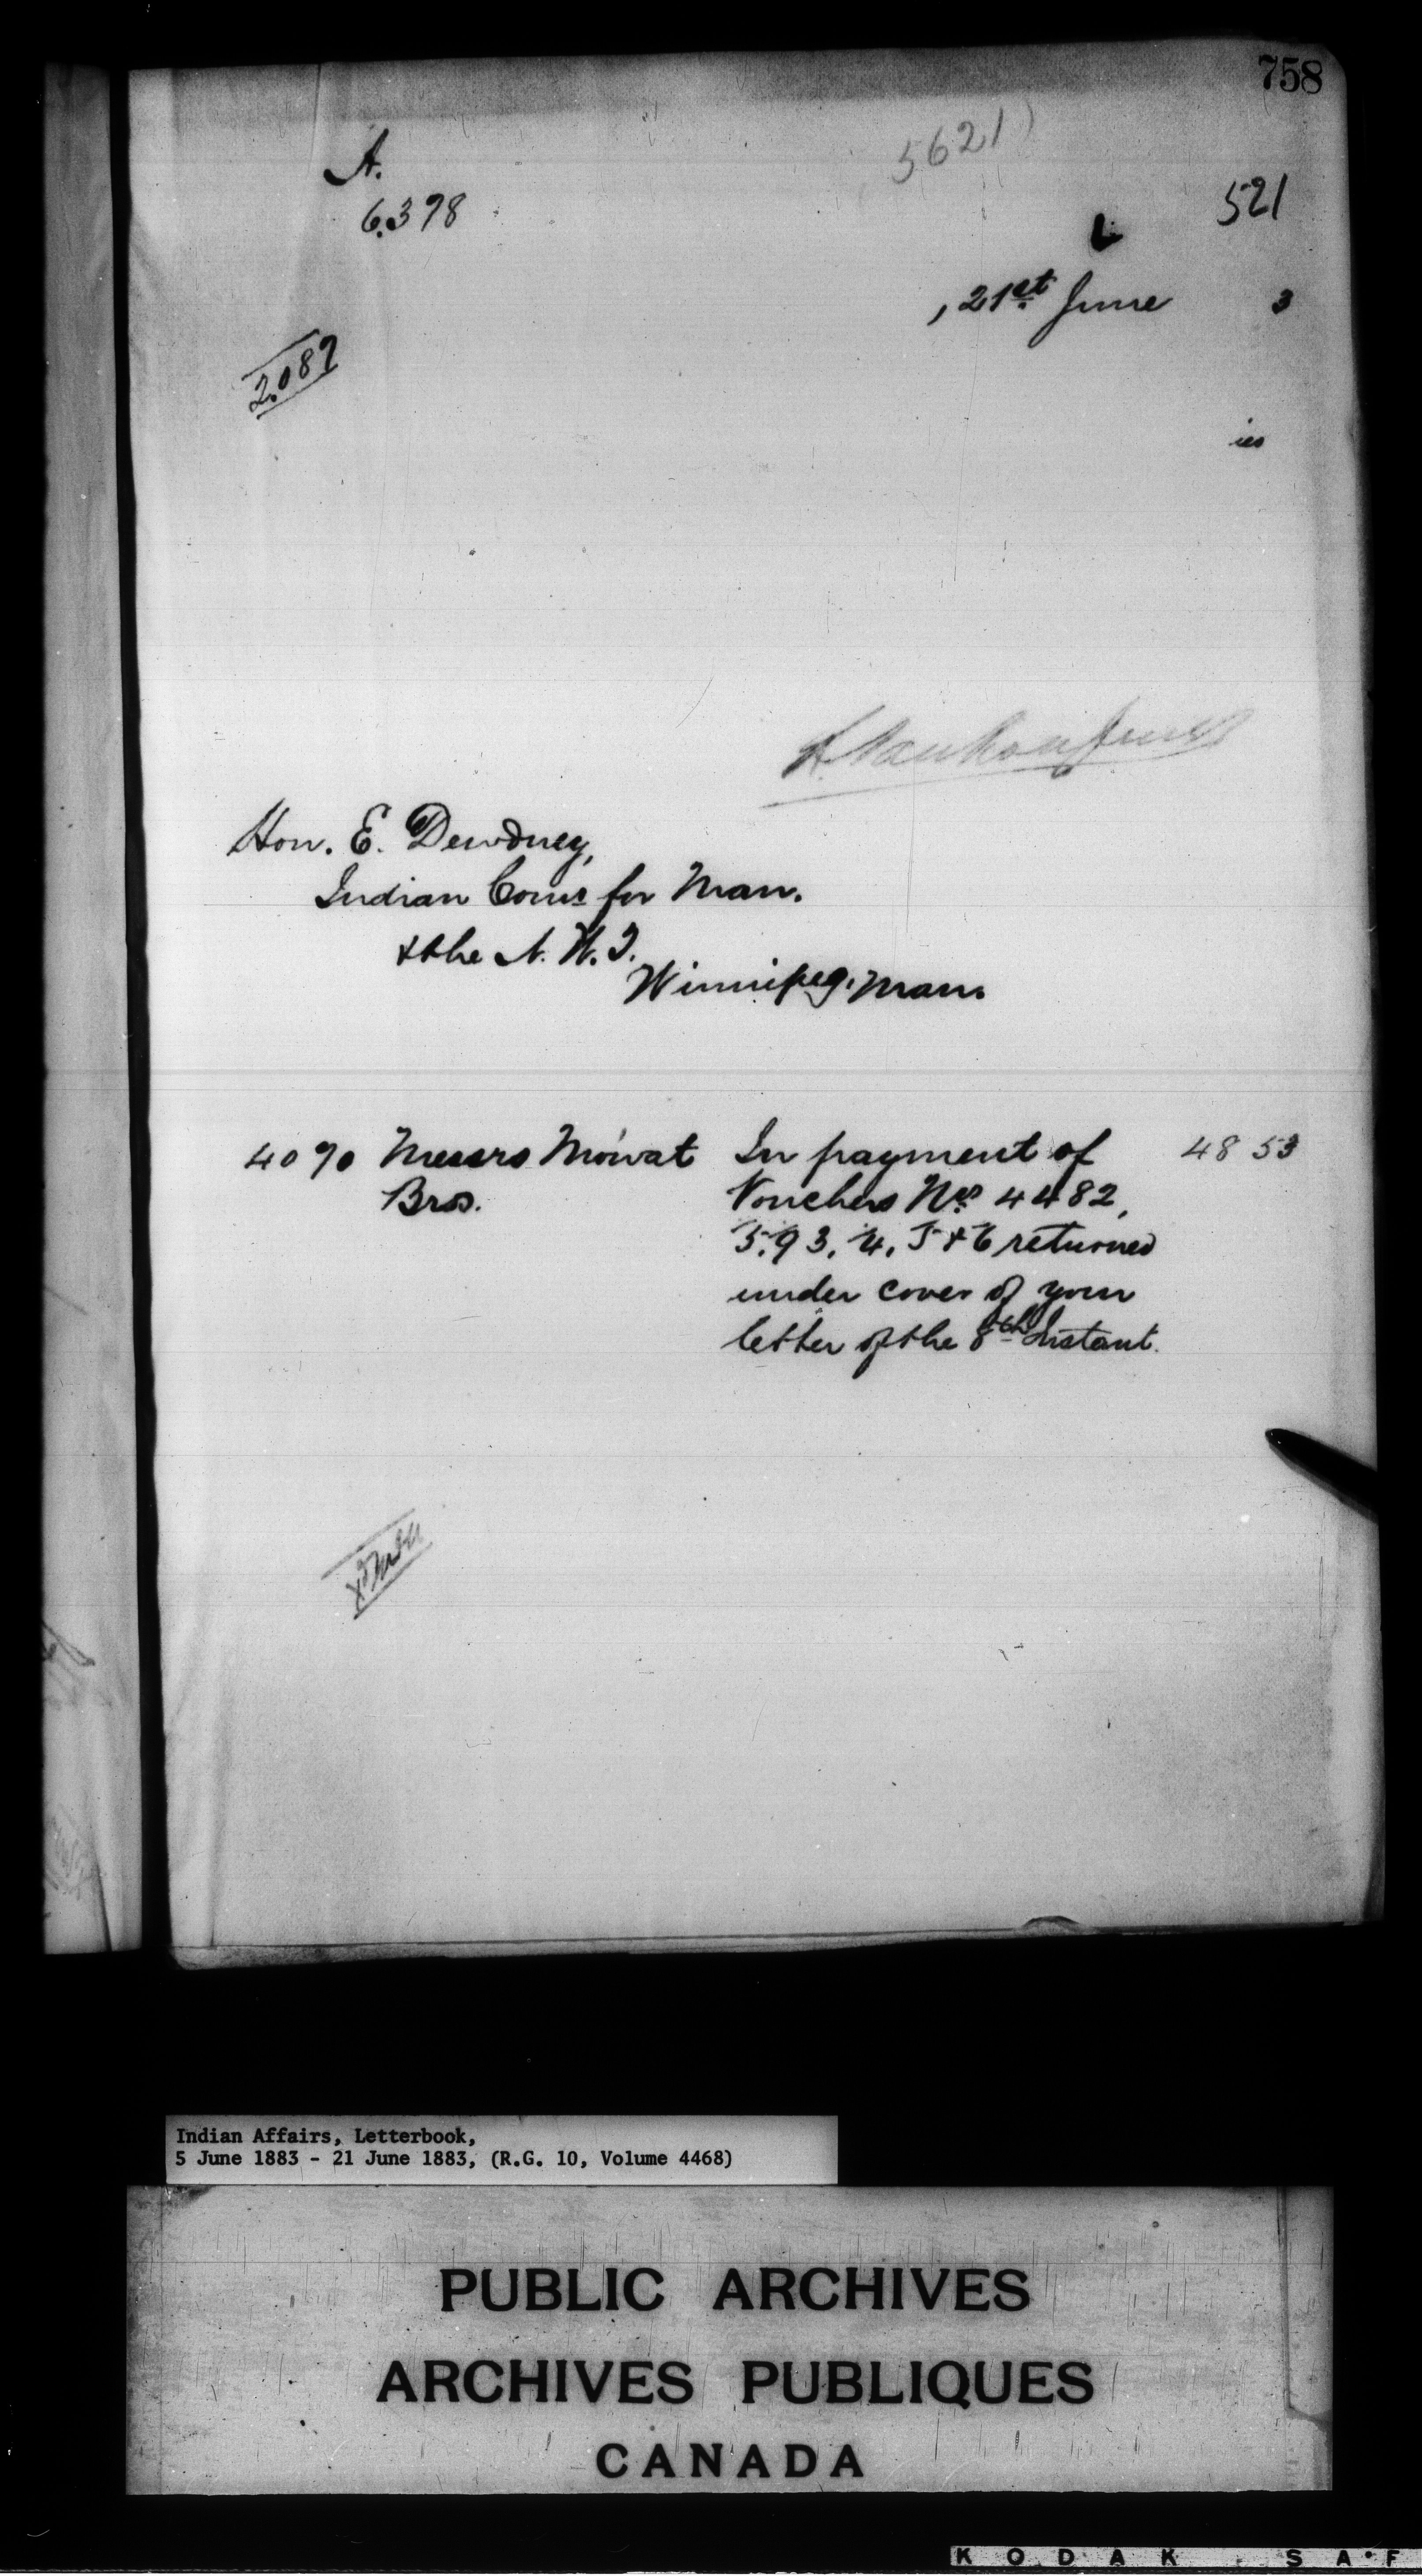 758
A.
5621
6.398
521
L
, 21st June 3
2.087
ies
L. Vankoughnet
Hon. E. Dewdney,
Indian Comr for Man.
& the N. W. T.
Winnipeg, Man.
4090 Messrs Mowat In payment of 48 53
Bros. Vouchers Nos 4482,
5.93, 4, 5 & 6 returned
under cover of your
letter of the 8th Instant.
Indian Affairs, Letterbook,
5 June 1883 - 21 June 1883, (R.G. 10, Volume 4468)
PUBLIC ARCHIVES
ARCHIVES PUBLIQUES
CANADA
KODAK SAF